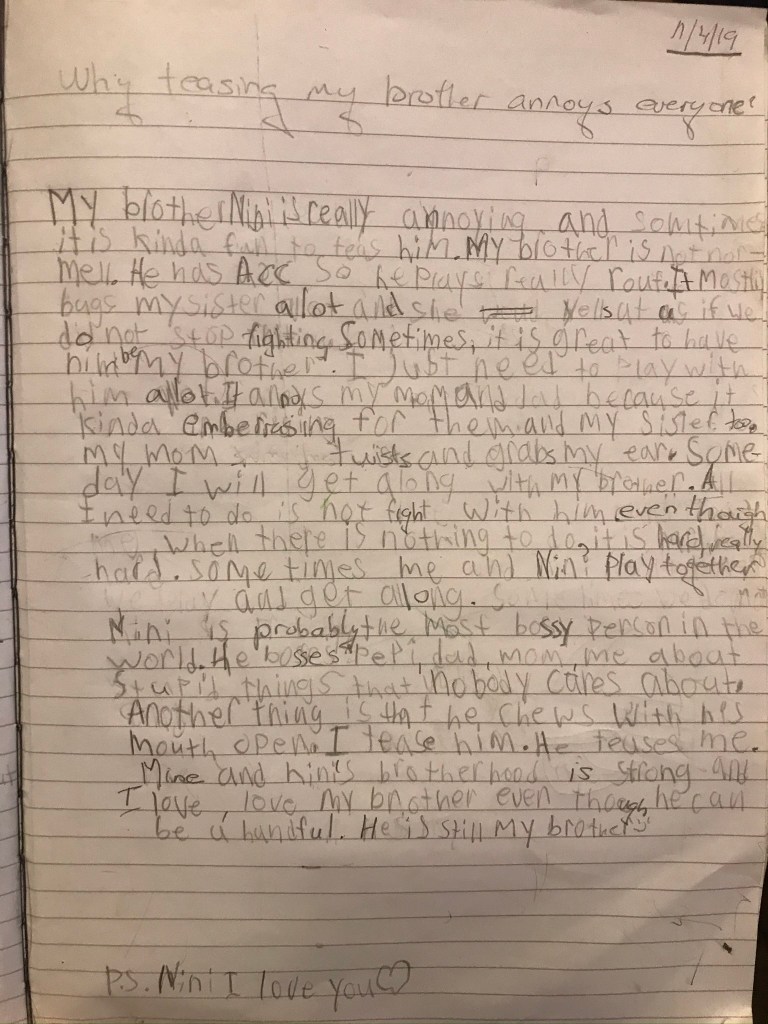 11/4/19
Why teasing my brother annoys everyone!
My brother Nini is really annoying and somtimes
it is kinda fun to teas him. My brother is not nor-
mell. He has Acc so he plays really rout. It mostly
bugs my sister allot and she yells at us if we
do not stop fighting. Sometimes, it is great to have
him be my brother. I just need to play with
him allot. It annoys my mom and dad because it
kinda emberrasing for them and my sister too.
my mom twists and grabs my ear. Some-
day I will get along with my brother. All
I need to do is not fight with him even though
when there is nothing to do, it is hard, really
hard. some times me and Nini play together
and get allong.
Nini is probably the most bossy person in the
world. He bosses Pepi, dad, mom, me about
stupid things that nobody cares about.
Another thing is that he chews with his
mouth open. I tease him. He teuses me.
Mine and Nini's brotherhood is strong and
I love, love my brother even though he can
be a handful. He is still my brother
P.S. Nini I love you